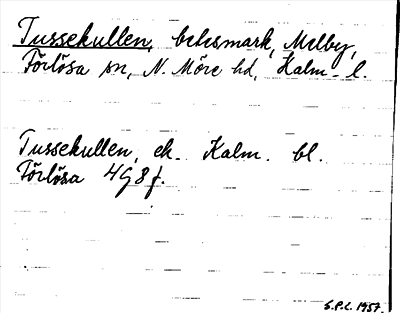 Tussekullen, bebismark, Melby,
Förlösa sn, N. Möre hd, Kalm. l.
Tussekullen, ek. Kalm. bl.
Förlösa 4G8f.
S.P.L. 1957.